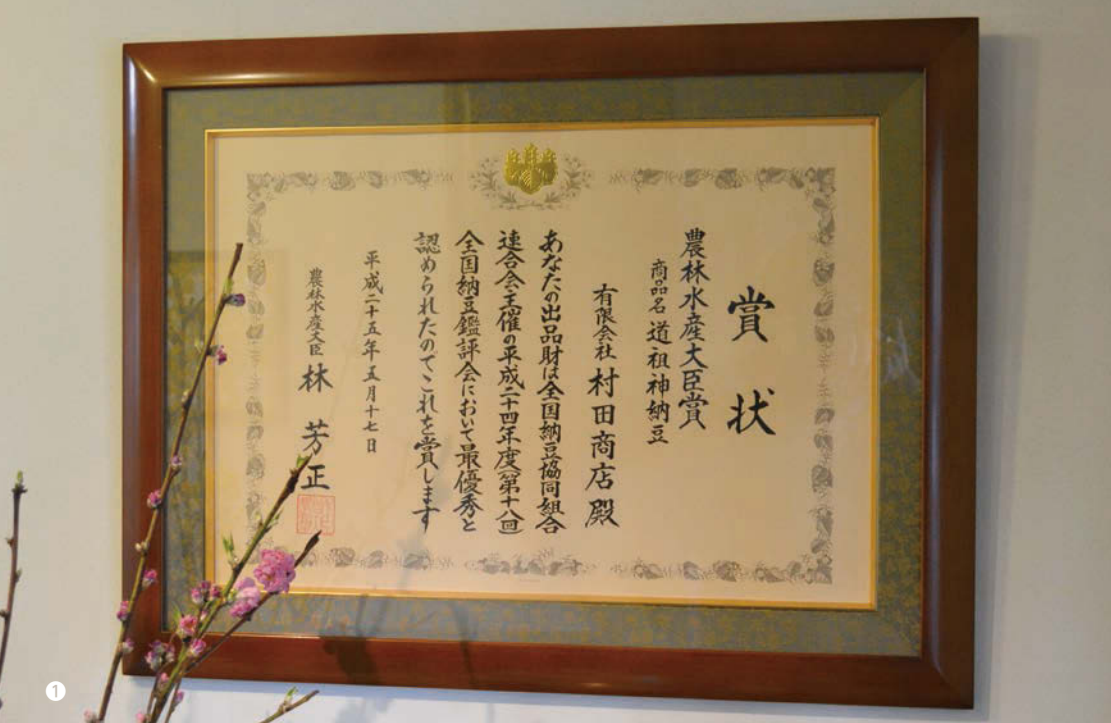 賞状
農林水産大臣賞
商品名 道祖神納豆
有限会社 村田商店 殿
あなたの出品財は全国納豆協同組合
連合会主催の平成二十四年度(第十八回)
全国納豆鑑評会において最優秀と
認められたのでこれを賞します
平成二十五年五月十七日
農林水産大臣 林 芳正
1